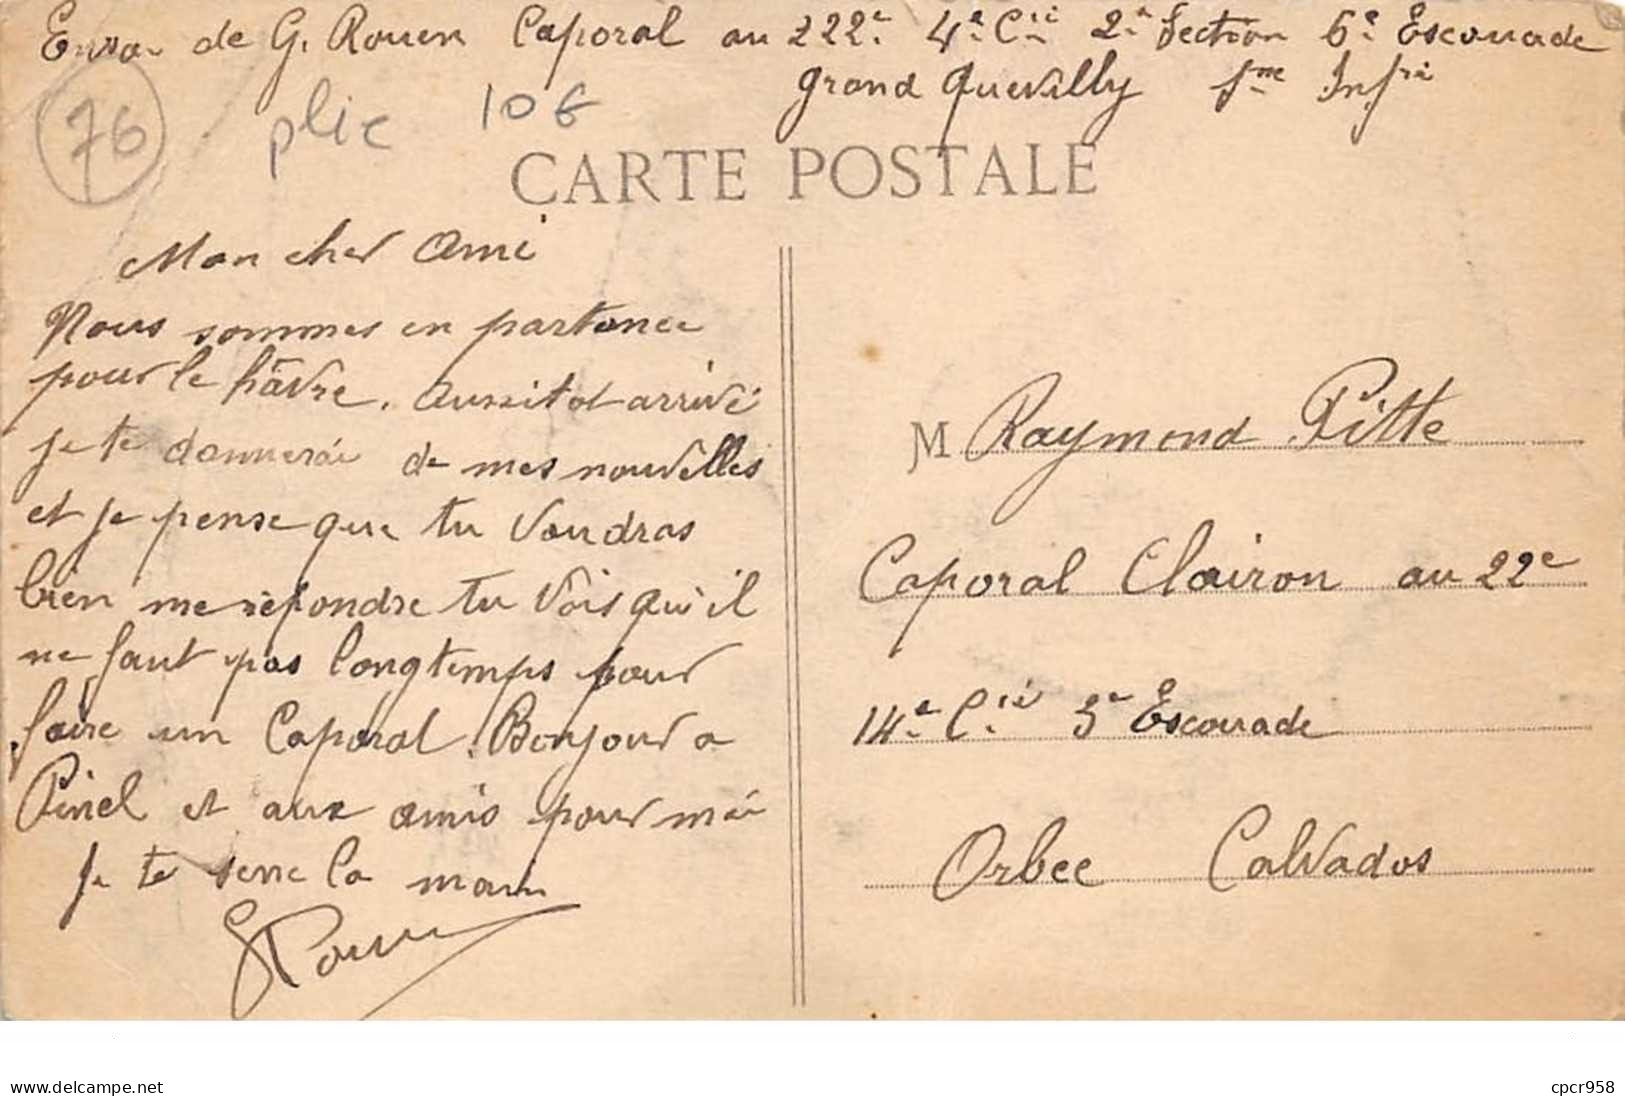 Envoi de G. Rouen Caporal au 222e 4e Cie 2e Section 6e Escouade
Grand Quevilly Sne Infre
76
plic 10€
CARTE POSTALE
Mon cher Ami
Nous sommes en partance
pour le hâvre. Aussitot arrivé
je te donnerai de mes nouvelles
et je pense que tu voudras
bien me répondre tu vois qu'il
ne faut pas longtemps pour
faire un Caporal. Bonjour a
Pinel et aux amis pour moi
Je te serre la main
GRouen
M Raymond Pitte
Caporal Clairon au 22e
14e Cie 5e Escouade
Orbec Calvados
www.delcampe.net
cpcr958